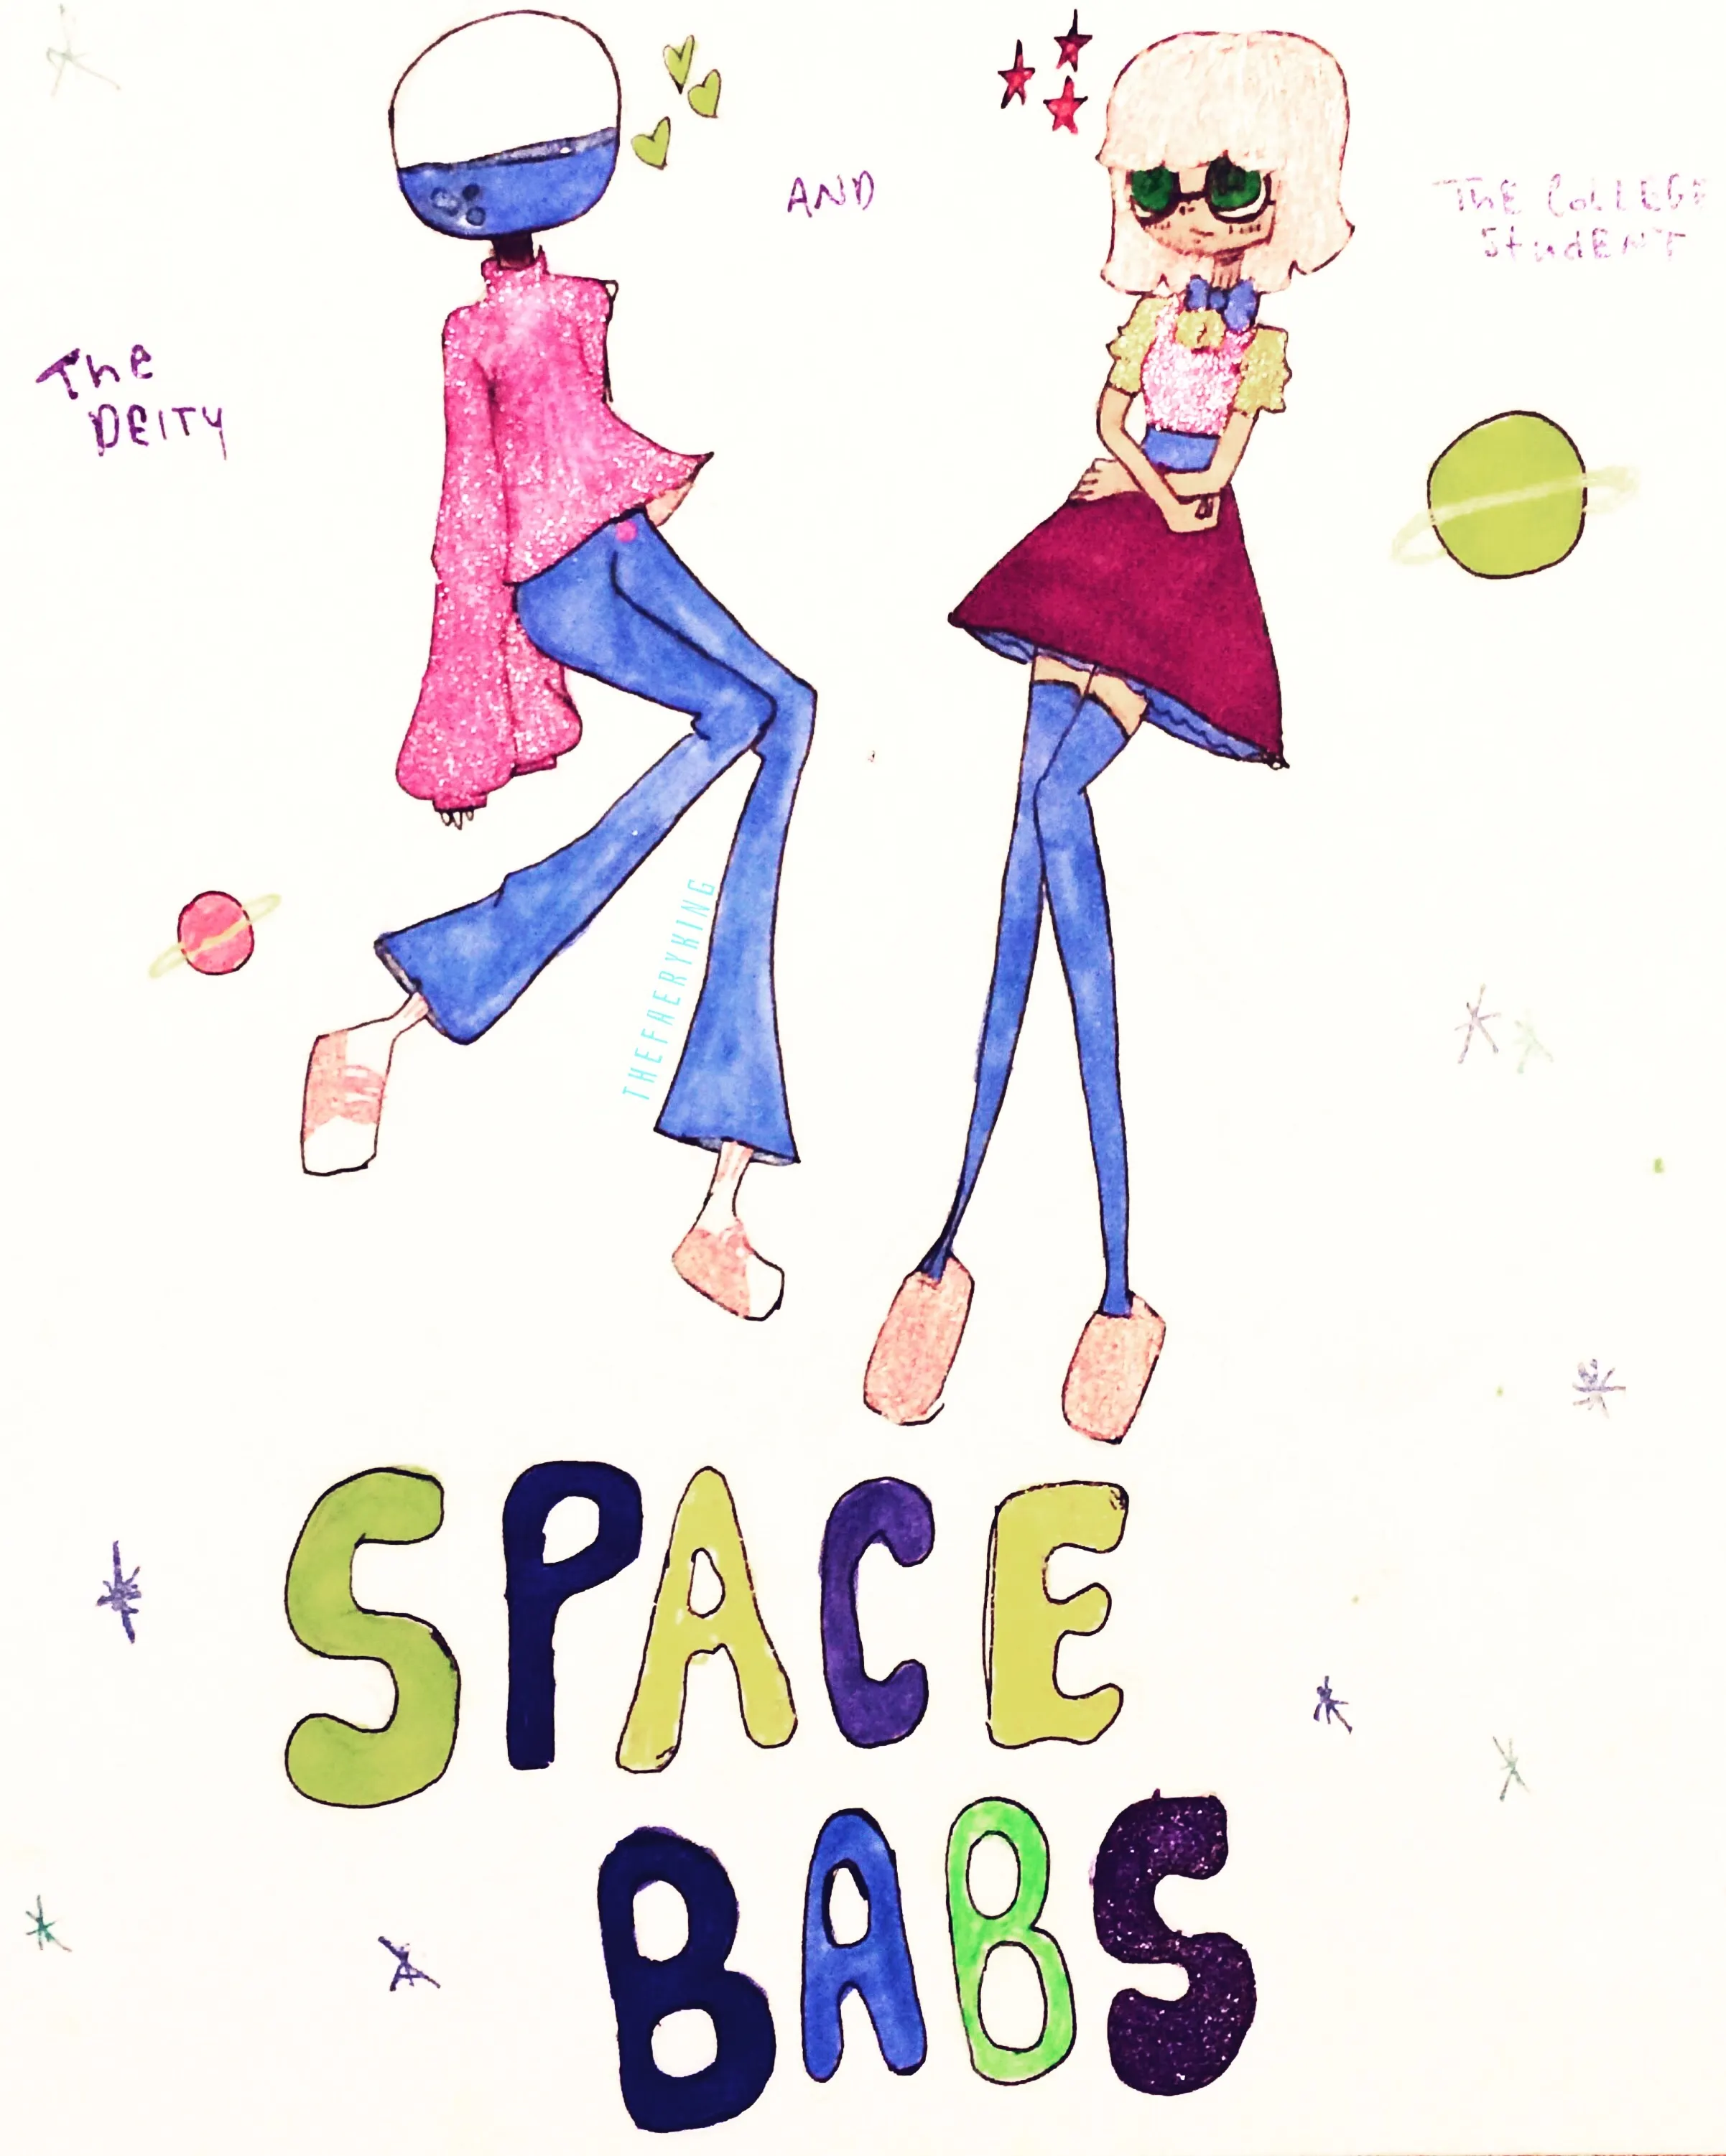 The
DEITY
AND
THE COLLEGE
StudENT
THEFAERYKING
SPACE
BABS